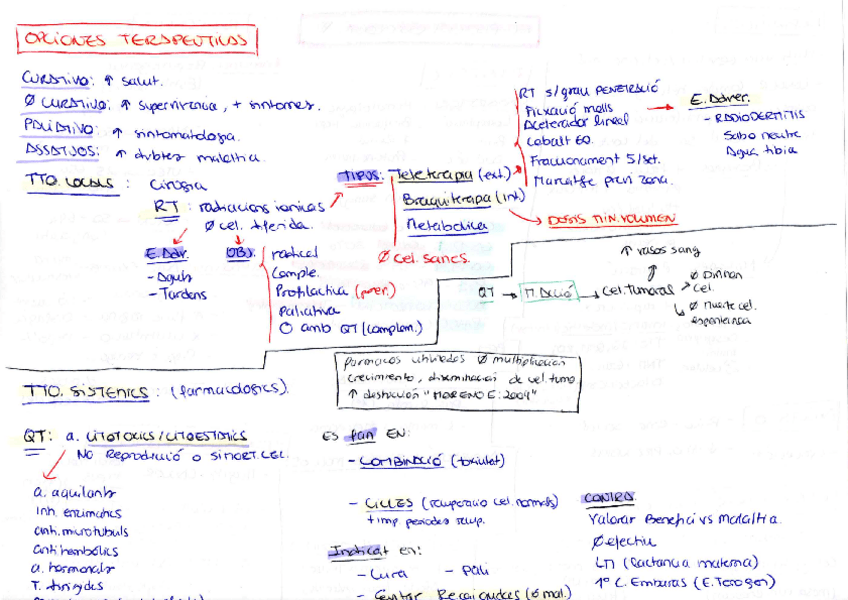 OPCIONES TERAPEUTICAS
CURATIVO: ↑ salut.
Ø CURATIVO: ↑ supervivencia, + sintomes.
PALIATIVO: ↑ sintomatologia.
↑ dubtes malaltia.
TTO. LOCALS : Cirugia
RT : radiacions ioniques
Ø cel. diferida.
E. Adv.
- Aguts
- Tardens
OBJ.
radical
Comple.
Profilactica (prev.)
Paliativa
O amb QT (complem.)
TIPUS: Teleterapia (ext.)
Braquiterapia (int)
Metabolica
Ø cel. sanes.
RT s/grau PENETRACIÓ
Fixació molls
Acelerador lineal
Cobalt 60.
Fraccionament 5/set.
Marcatge previ zona.
E. Adver.
- RADIODERTITIS
Sabo neutre
Agua tibia
DOSIS MIN. VOLUMEN
QT → M. Acció → Cel. Tumorals
↑ vasos sang
Ø Dividan cel.
Ø Muerte cel.
farmacos utilizados Ø multiplicacion
crecimiento, diseminacion de cel. tumo
↑ destrucción "MORENO E: 2004"
TTO. SISTEMICS : (farmacologics).
QT: a. CITOTOXICS/CITOESTATICS
NO Reproducció o SIMORT. CEL.
a. alquilants
Inh. enzimatics
anti. microtubuls
Anti metabólics
a. hormonals
T. dirigides
ES fan EN:
- COMBINACIÓ (toxicitat)
- CICLES (recuperacio cel. normals)
+ imp periodes recup.
Indicat en:
- Cura
- Pali
- Evitar Recaigudes (6 mal.)
CONTRA
Valorar Benefici vs Malaltia.
Ø efectiu
LM (Lactancia materna)
1º C. Embaras (E. Terogen)